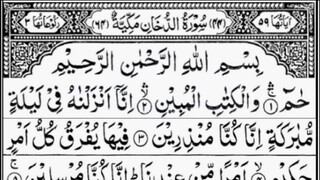 اٰيَاتُهَا ٥٩ (٤٤) سُوْرَةُ الدُّخَانِ مَكِّيَّةٌ (٦٤) رُكُوْعَاتُهَا ٣
بِسْمِ اللّٰهِ الرَّحْمٰنِ الرَّحِيْمِ
حٰمٓ ۝١ وَالْكِتٰبِ الْمُبِيْنِ ۝٢ اِنَّاۤ اَنْزَلْنٰهُ فِيْ لَيْلَةٍ
مُّبٰرَكَةٍ اِنَّا كُنَّا مُنْذِرِيْنَ ۝٣ فِيْهَا يُفْرَقُ كُلُّ اَمْرٍ
حَكِيْمٍ ۝٤ اَمْرًا مِّنْ عِنْدِنَا اِنَّا كُنَّا مُرْسِلِيْنَ ۝٥